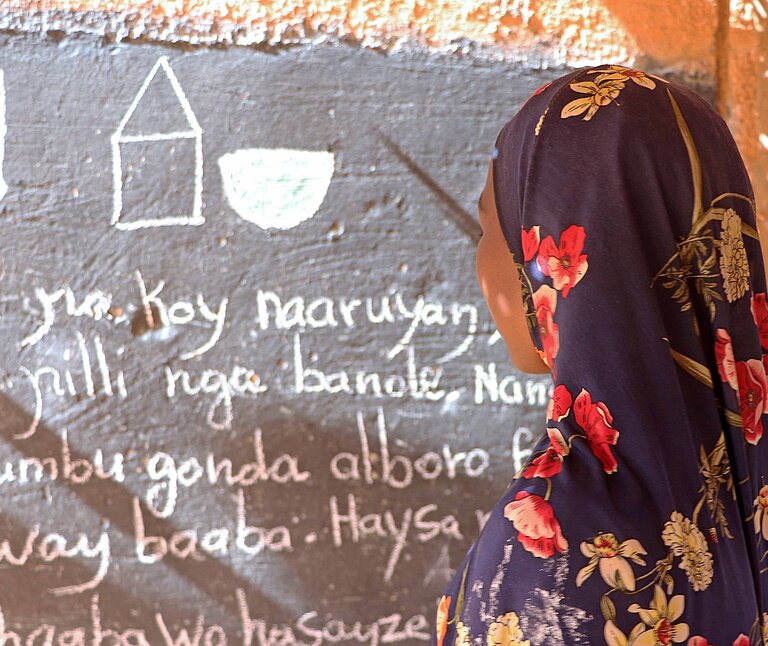 koy naaruyan,
pilli nga banda. Nan
umbu gonda alboro f
way baaba. Haysa
baaba wo hasayze